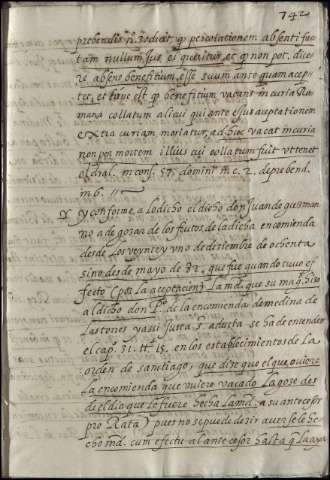 742
prebendis nº 3 dicit, q̃ p collationem absenti fac
tam nullum jus, ei queritur, et q̃ non pot. dice
re absens beneficium, esse suum ante quam acep
tet, et tunc est q̃ beneficium vacans in curia Ro
mana collatum alicui qui ante ejus aceptationem
extra curiam moriatur, adhuc vacat in curia
non per mortem illius cui collatum fuit ut tenet
oldral. in cons. 57. domini in c. 2. de prebend.
in 6. //
y conforme a lo dicho el dicho don Juan de guzman
no a de gozar de los frutos de la dicha encomienda
desde los veynte y uno de diciembre de ochenta
sino desde mayo de 82, que fue quando tuvo ef
fecto (por la aceptacion) la md. que su magd. hizo
al dicho don Pº de la encomienda de medina de
las torres y assi justa s. adusta se ha de entender
el cap. 31. tt. 15. en los establecimientos de la
orden de santiago, que dize que el que oviere
la encomienda que uviere vacado la goze des
de el dia que le fuere hecha la md. a su antecesor
pro Rata) pues no se puede dezir averse le he
cho md. cum efectu al antecesor hasta q̃ la aya